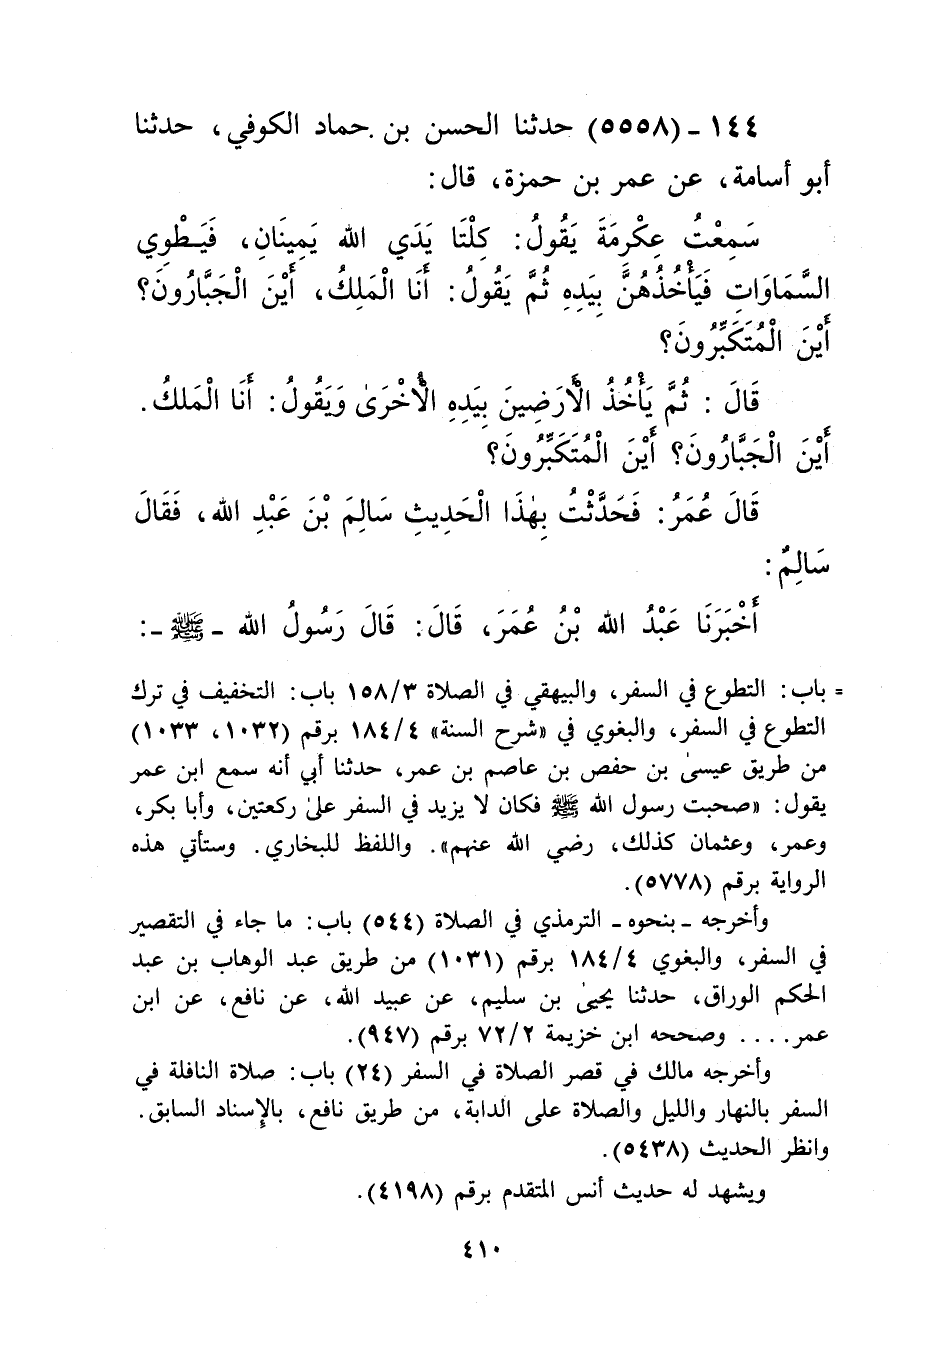 ١٤٤ ـ (٥٥٥٨) حدثنا الحسن بن حماد الكوفي، حدثنا
أبو أسامة، عن عمر بن حمزة، قال:
سَمِعْتُ عِكْرِمَةَ يَقُولُ: كِلْتَا يَدَي الله يَمِينَانِ، فَيَطْوِي
السَّمَاوَاتِ فَيَأْخُذُهُنَّ بِيَدِهِ ثُمَّ يَقُولُ: أَنَا الْمَلِكُ، أَيْنَ الْجَبَّارُونَ؟
أَيْنَ الْمُتَكَبِّرُونَ؟
قَالَ : ثُمَّ يَأْخُذُ الْأَرَضِينَ بِيَدِهِ الْأُخْرَىٰ وَيَقُولُ: أَنَا الْمَلِكُ.
أَيْنَ الْجَبَّارُونَ؟ أَيْنَ الْمُتَكَبِّرُونَ؟
قَالَ عُمَرُ: فَحَدَّثْتُ بِهٰذَا الْحَدِيثِ سَالِمَ بْنَ عَبْدِ الله، فَقَالَ
سَالِمٌ:
أَخْبَرَنَا عَبْدُ الله بْنُ عُمَرَ، قَالَ: قَالَ رَسُولُ الله ـ ﷺ ـ:
= باب: التطوع في السفر، والبيهقي في الصلاة ١٥٨/٣ باب: التخفيف في ترك
التطوع في السفر، والبغوي في «شرح السنة» ١٨٤/٤ برقم (١٠٣٢، ١٠٣٣)
من طريق عيسىٰ بن حفص بن عاصم بن عمر، حدثنا أبي أنه سمع ابن عمر
يقول: «صحبت رسول الله ﷺ فكان لا يزيد في السفر علىٰ ركعتين، وأبا بكر،
وعمر، وعثمان كذلك، رضي الله عنهم». واللفظ للبخاري. وستأتي هذه
الرواية برقم (٥٧٧٨).
وأخرجه ـ بنحوه ـ الترمذي في الصلاة (٥٤٤) باب: ما جاء في التقصير
في السفر، والبغوي ١٨٤/٤ برقم (١٠٣١) من طريق عبد الوهاب بن عبد
الحكم الوراق، حدثنا يحيىٰ بن سليم، عن عبيد الله، عن نافع، عن ابن
عمر.... وصححه ابن خزيمة ٧٢/٢ برقم (٩٤٧).
وأخرجه مالك في قصر الصلاة في السفر (٢٤) باب: صلاة النافلة في
السفر بالنهار والليل والصلاة على الدابة، من طريق نافع، بالإسناد السابق.
وانظر الحديث (٥٤٣٨).
ويشهد له حديث أنس المتقدم برقم (٤١٩٨).
٤١٠